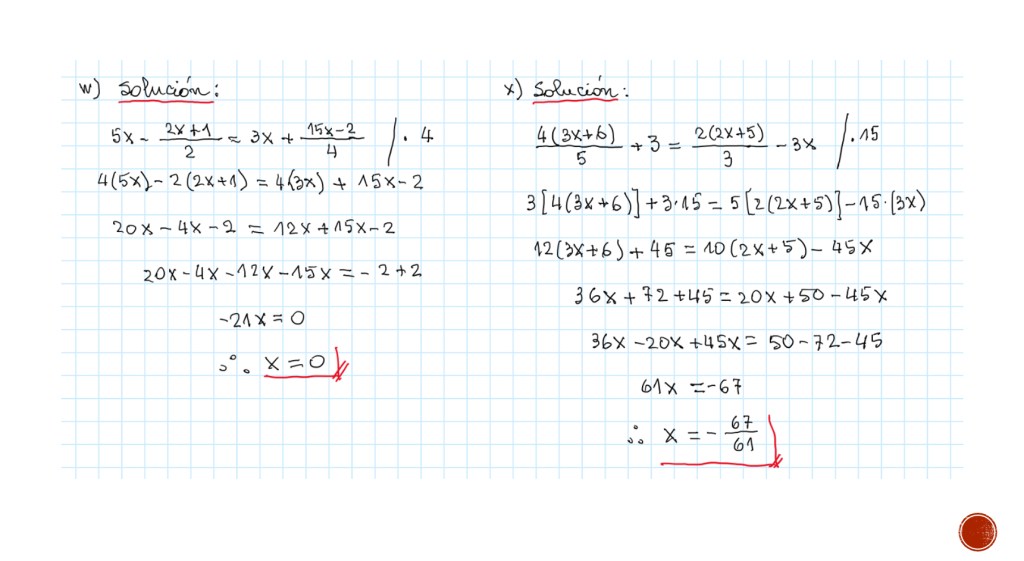 w) Solución:
5x - \frac{2x+1}{2} = 3x + \frac{15x-2}{4} / · 4
4(5x) - 2(2x+1) = 4(3x) + 15x - 2
20x - 4x - 2 = 12x + 15x - 2
20x - 4x - 12x - 15x = - 2 + 2
-21x = 0
∴ x = 0
x) Solución:
\frac{4(3x+6)}{5} + 3 = \frac{2(2x+5)}{3} - 3x / · 15
3[4(3x+6)] + 3·15 = 5[2(2x+5)] - 15·(3x)
12(3x+6) + 45 = 10(2x+5) - 45x
36x + 72 + 45 = 20x + 50 - 45x
36x - 20x + 45x = 50 - 72 - 45
61x = -67
∴ x = - \frac{67}{61}